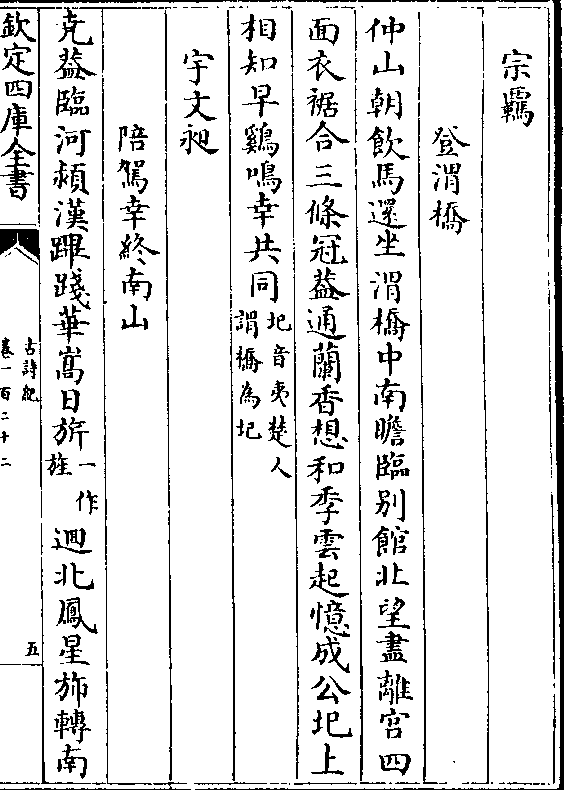 宗羈
登渭橋
仲山朝飲馬還坐渭橋中南瞻臨别館北望盡離宫四
面衣裾合三條冠葢通蘭香想和季雲起憶成公圯上
相知早鷄鳴幸共同圯音夷楚人謂橋為圯
宇文昶
陪駕幸終南山
尭葢臨河頞漢蹕踐華嵩日旂一作旌廻北鳳星斾轉南
欽定四庫全書
古詩紀
卷一百二十二
五